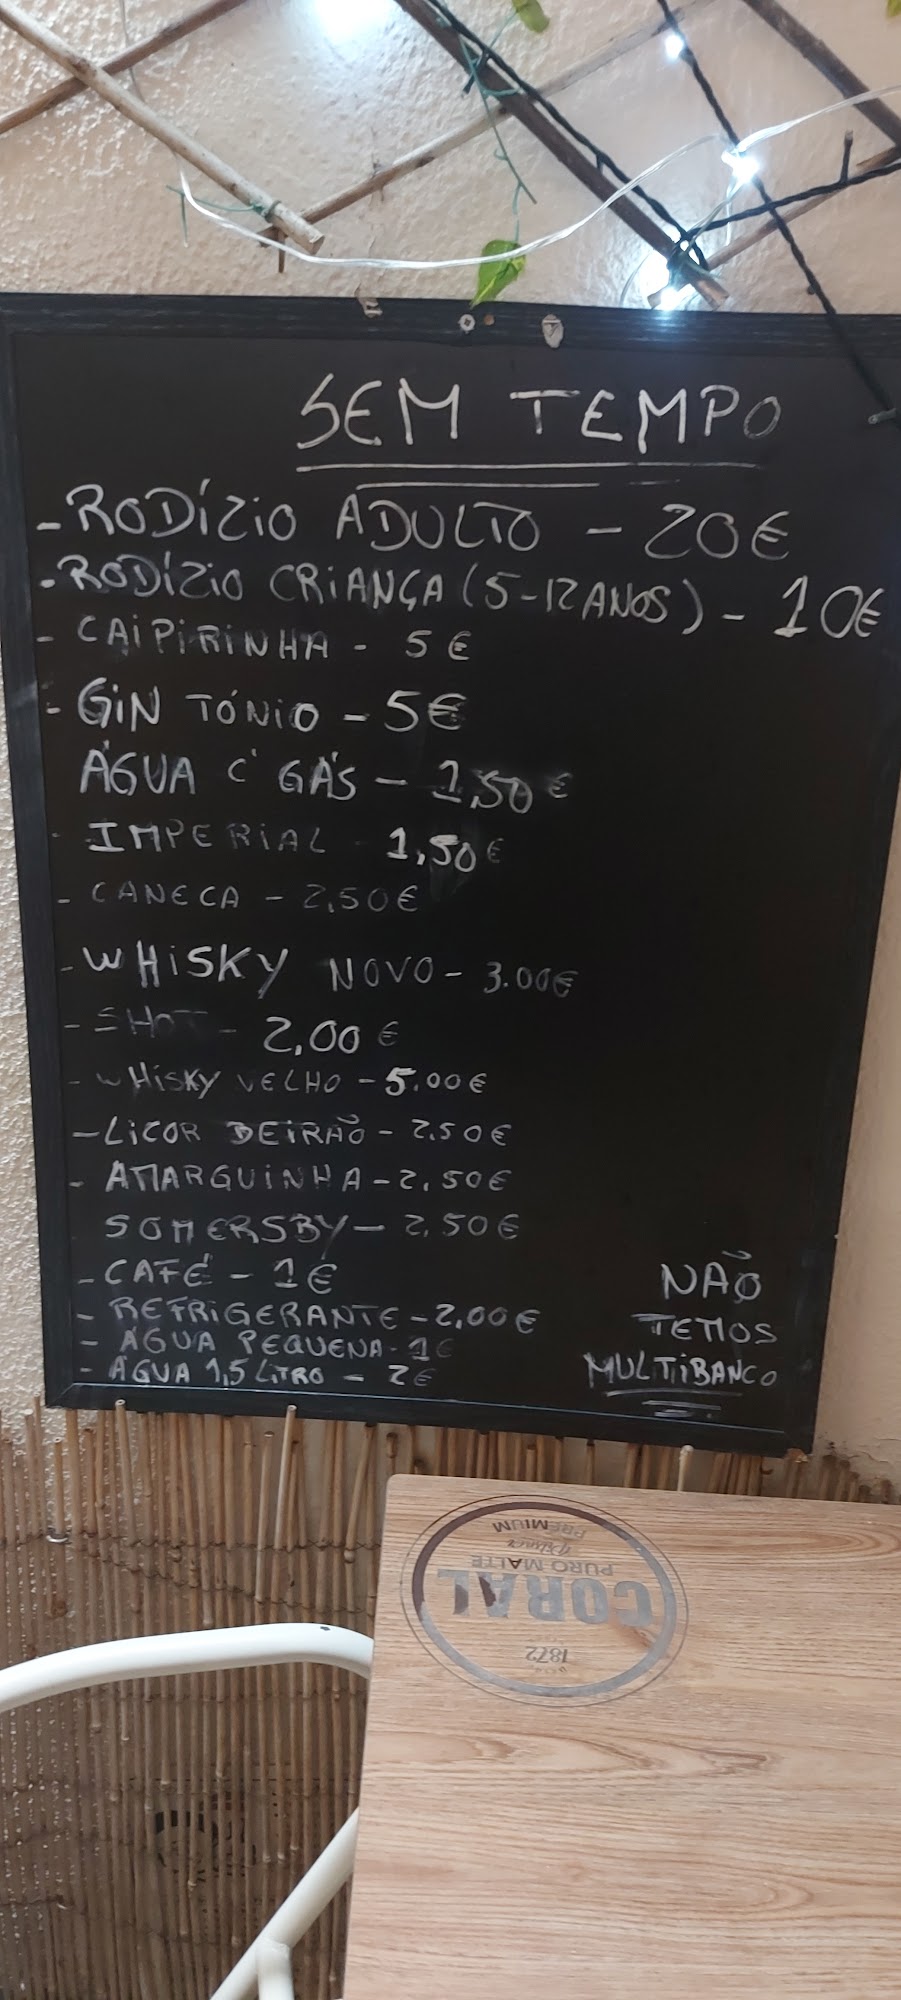 SEM TEMPO
- RODÍZIO ADULTO - 20€
- RODÍZIO CRIANÇA (5-12 ANOS) - 10€
- CAIPIRINHA - 5€
- GIN TÓNIO - 5€
ÁGUA C' GÁS - 1,50€
- IMPERIAL - 1,50€
- CANECA - 2,50€
- WHISKY NOVO - 3.00€
- SHOT - 2,00€
- WHISKY VELHO - 5.00€
- LICOR BEIRÃO - 2,50€
- AMARGUINHA - 2,50€
SOMERSBY - 2,50€
- CAFÉ - 1€
- REFRIGERANTE - 2,00€
- ÁGUA PEQUENA - 1€
- ÁGUA 1,5 LITRO - 2€
NÃO
TEMOS
MULTIBANCO
1872
CORAL
PURO MALTE
PREMIUM